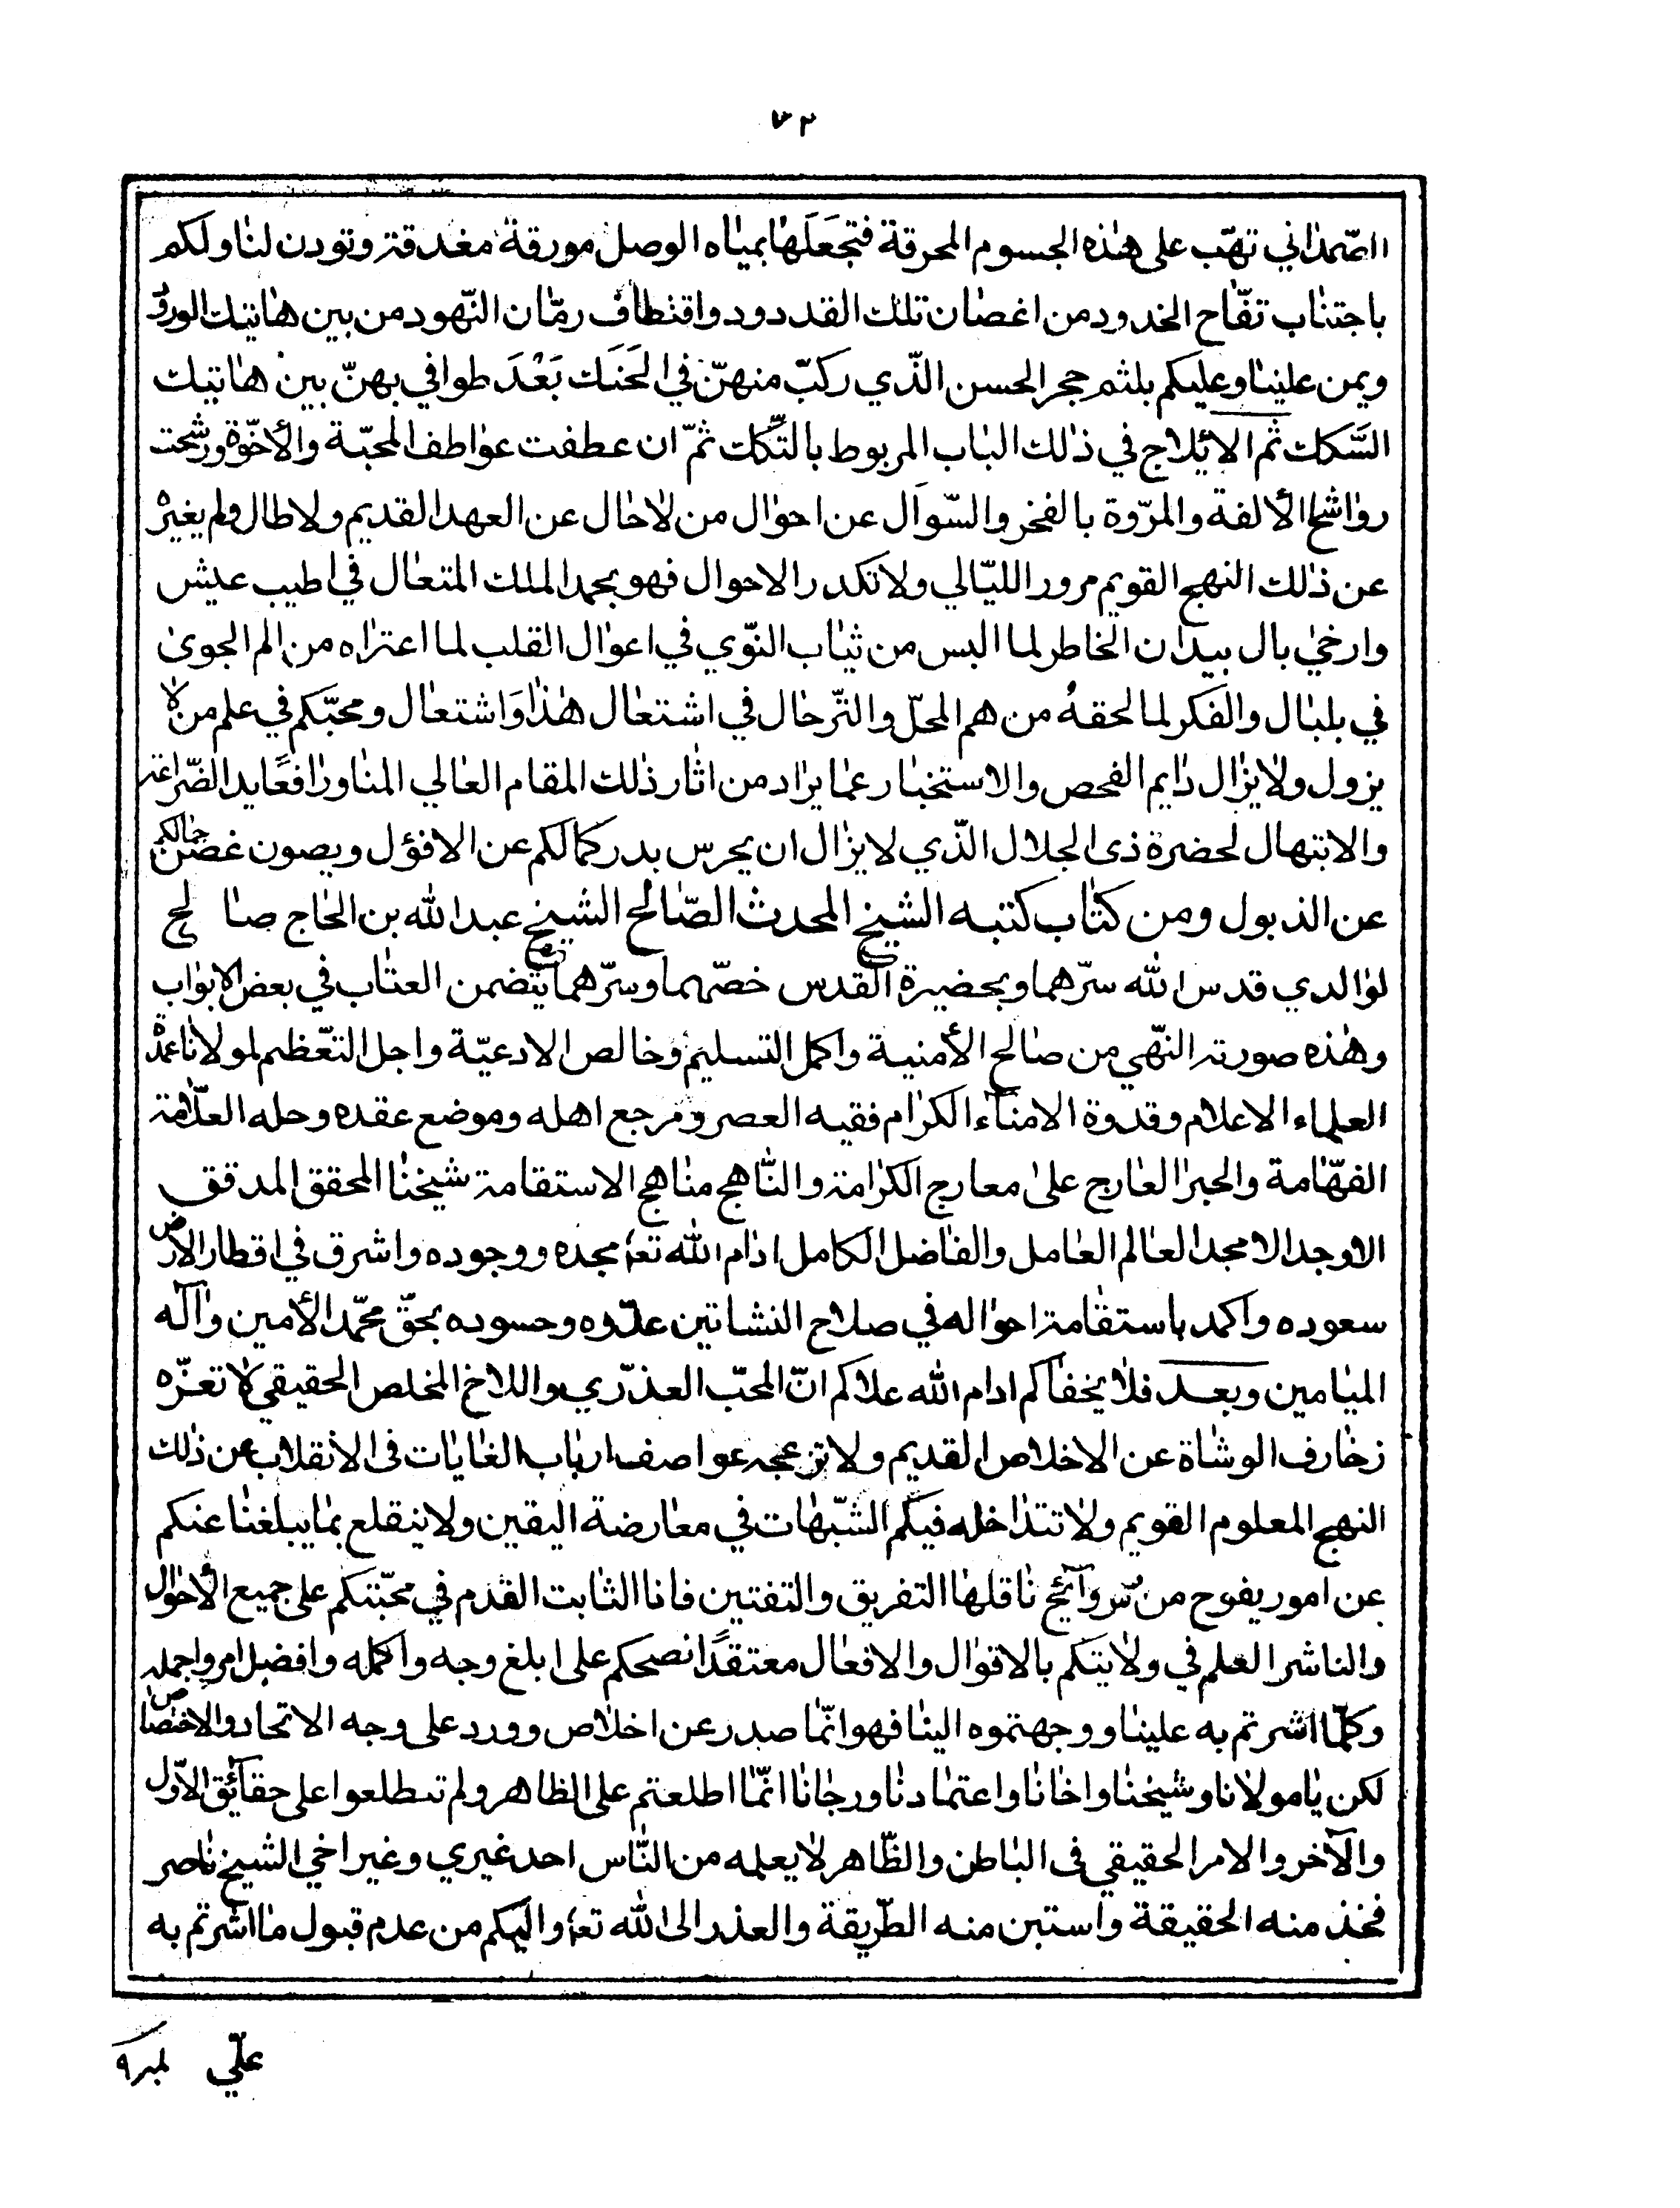 ٧٢
الصّمداني تهبّ على هذه الجسوم المحرقة فتجعَلَها بمياه الوصل مورقة مغدقة وتودن لنا ولكم
باجتناب تفّاح الخدود من اغصان تلك القددود واقتطاف رمّان النّهود من بين هاتيك الورود
ويمن علينا وعليكم بلثم حجر الحسن الذّي ركبّ منهنّ في الحَنَك بَعْدَ طوافي بهنّ بين هاتيك
السَّكك ثم الايلاج في ذلك الباب المربوط بالتّكك ثمّ ان عطفت عواطف المحبّة والأخوّة ورشحت
رواشح الألفة والمرّوة بالفخر والسّوال عن احوال من لاحال عن العهد القديم ولا طال ولم يغيرْ
عن ذلك النهج القويم مرور الليّالي ولا تكدر الاحوال فهو بحمد الملك المتعال في اطيب عيش
وارخي بال بيدان الخاطر لما البس من ثياب النّوي في اعوال القلب لما اعتراه من الم الجوى
في بلبال والفكر لما لحقهُ من هم المحلّ والتّرحال في اشتعال هذا وَاشتعال ومحبّكم في علم من لا
يزول ولا يزال دايم الفحص والاستخبار عما يراد من اثار ذلك المقام العالي المنا ورافعًا يد الضّراعة
والابتهال لحضرة ذى الجلال الذّي لا يزال ان يحرس بدر كمالكم عن الافؤل ويصون غصن جمالكم
عن الذبول ومن كتاب كتبه الشيخ المحدث الصّالح الشيخ عبد الله بن الحاج صالح
لوالدي قدس الله سرّهما وبحضيرة القدس خصّهما وسرّهما يتضمن العتاب في بعض الابواب
وهذه صورته النّهي من صالح الأمنية واكمل التسليم وخالص الادعيّة واجل التعّظيم لمولانا عمدة
العلماء الاعلام وقدوة الامناء الكرام فقيه العصر ومرجع اهله وموضع عقده وحله العلّامة
الفهّامة والحبر العارج على معارج الكرامة والنّاهج مناهج الاستقامة شيخنا المحقق المدقق
الاوجد الامجد العالم العامل والفاضل الكامل ادام الله تعا مجده ووجوده واشرق في اقطار الارض
سعوده واكمد باستقامة احواله في صلاح النشاتين عدّوه وحسوده بحقّ محمّد الأمين وآله
الميامين وبعد فلا يخفاكم ادام الله علاكم انّ المحبّ العذرّي واللاخ المخلص الحقيقي لا تغرّه
زخارف الوشاة عن الاخلاص القديم ولا تزعجه عواصف ارباب الغايات فى الانقلاب عن ذلك
النهج المعلوم القويم ولا تتداخله فيكم الشّبهات في معارضة اليقين ولا ينقلع بما يبلغنا عنكم
عن امور يفوح من روآئح ناقلها التفريق والتفتين فانا الثابت القدم في محبّتكم على جميع الأحوال
والناشر العلم في ولايتكم بالاقوال والافعال معتقدًا نصحكم على ابلغ وجه واكمله وافضل امر واجمله
وكلّما اشرتم به علينا ووجهتموه الينا فهو انّما صدر عن اخلاص وورد على وجه الاتحاد والاختصاص
لكن يامولانا وشيخنا واخانا واعتمادنا ورجانا انّما اطلعتم على الظاهر ولم تطلعوا على حقآئق الاوّل
والآخر والامر الحقيقي فى الباطن والظّاهر لا يعلمه من النّاس احد غيري وغير اخي الشيخ ناصر
فخذ منه الحقيقة واستبن منه الطّريقة والعذر الى الله تعا واليكم من عدم قبول ما اشرتم به
علّي لمبر ٩